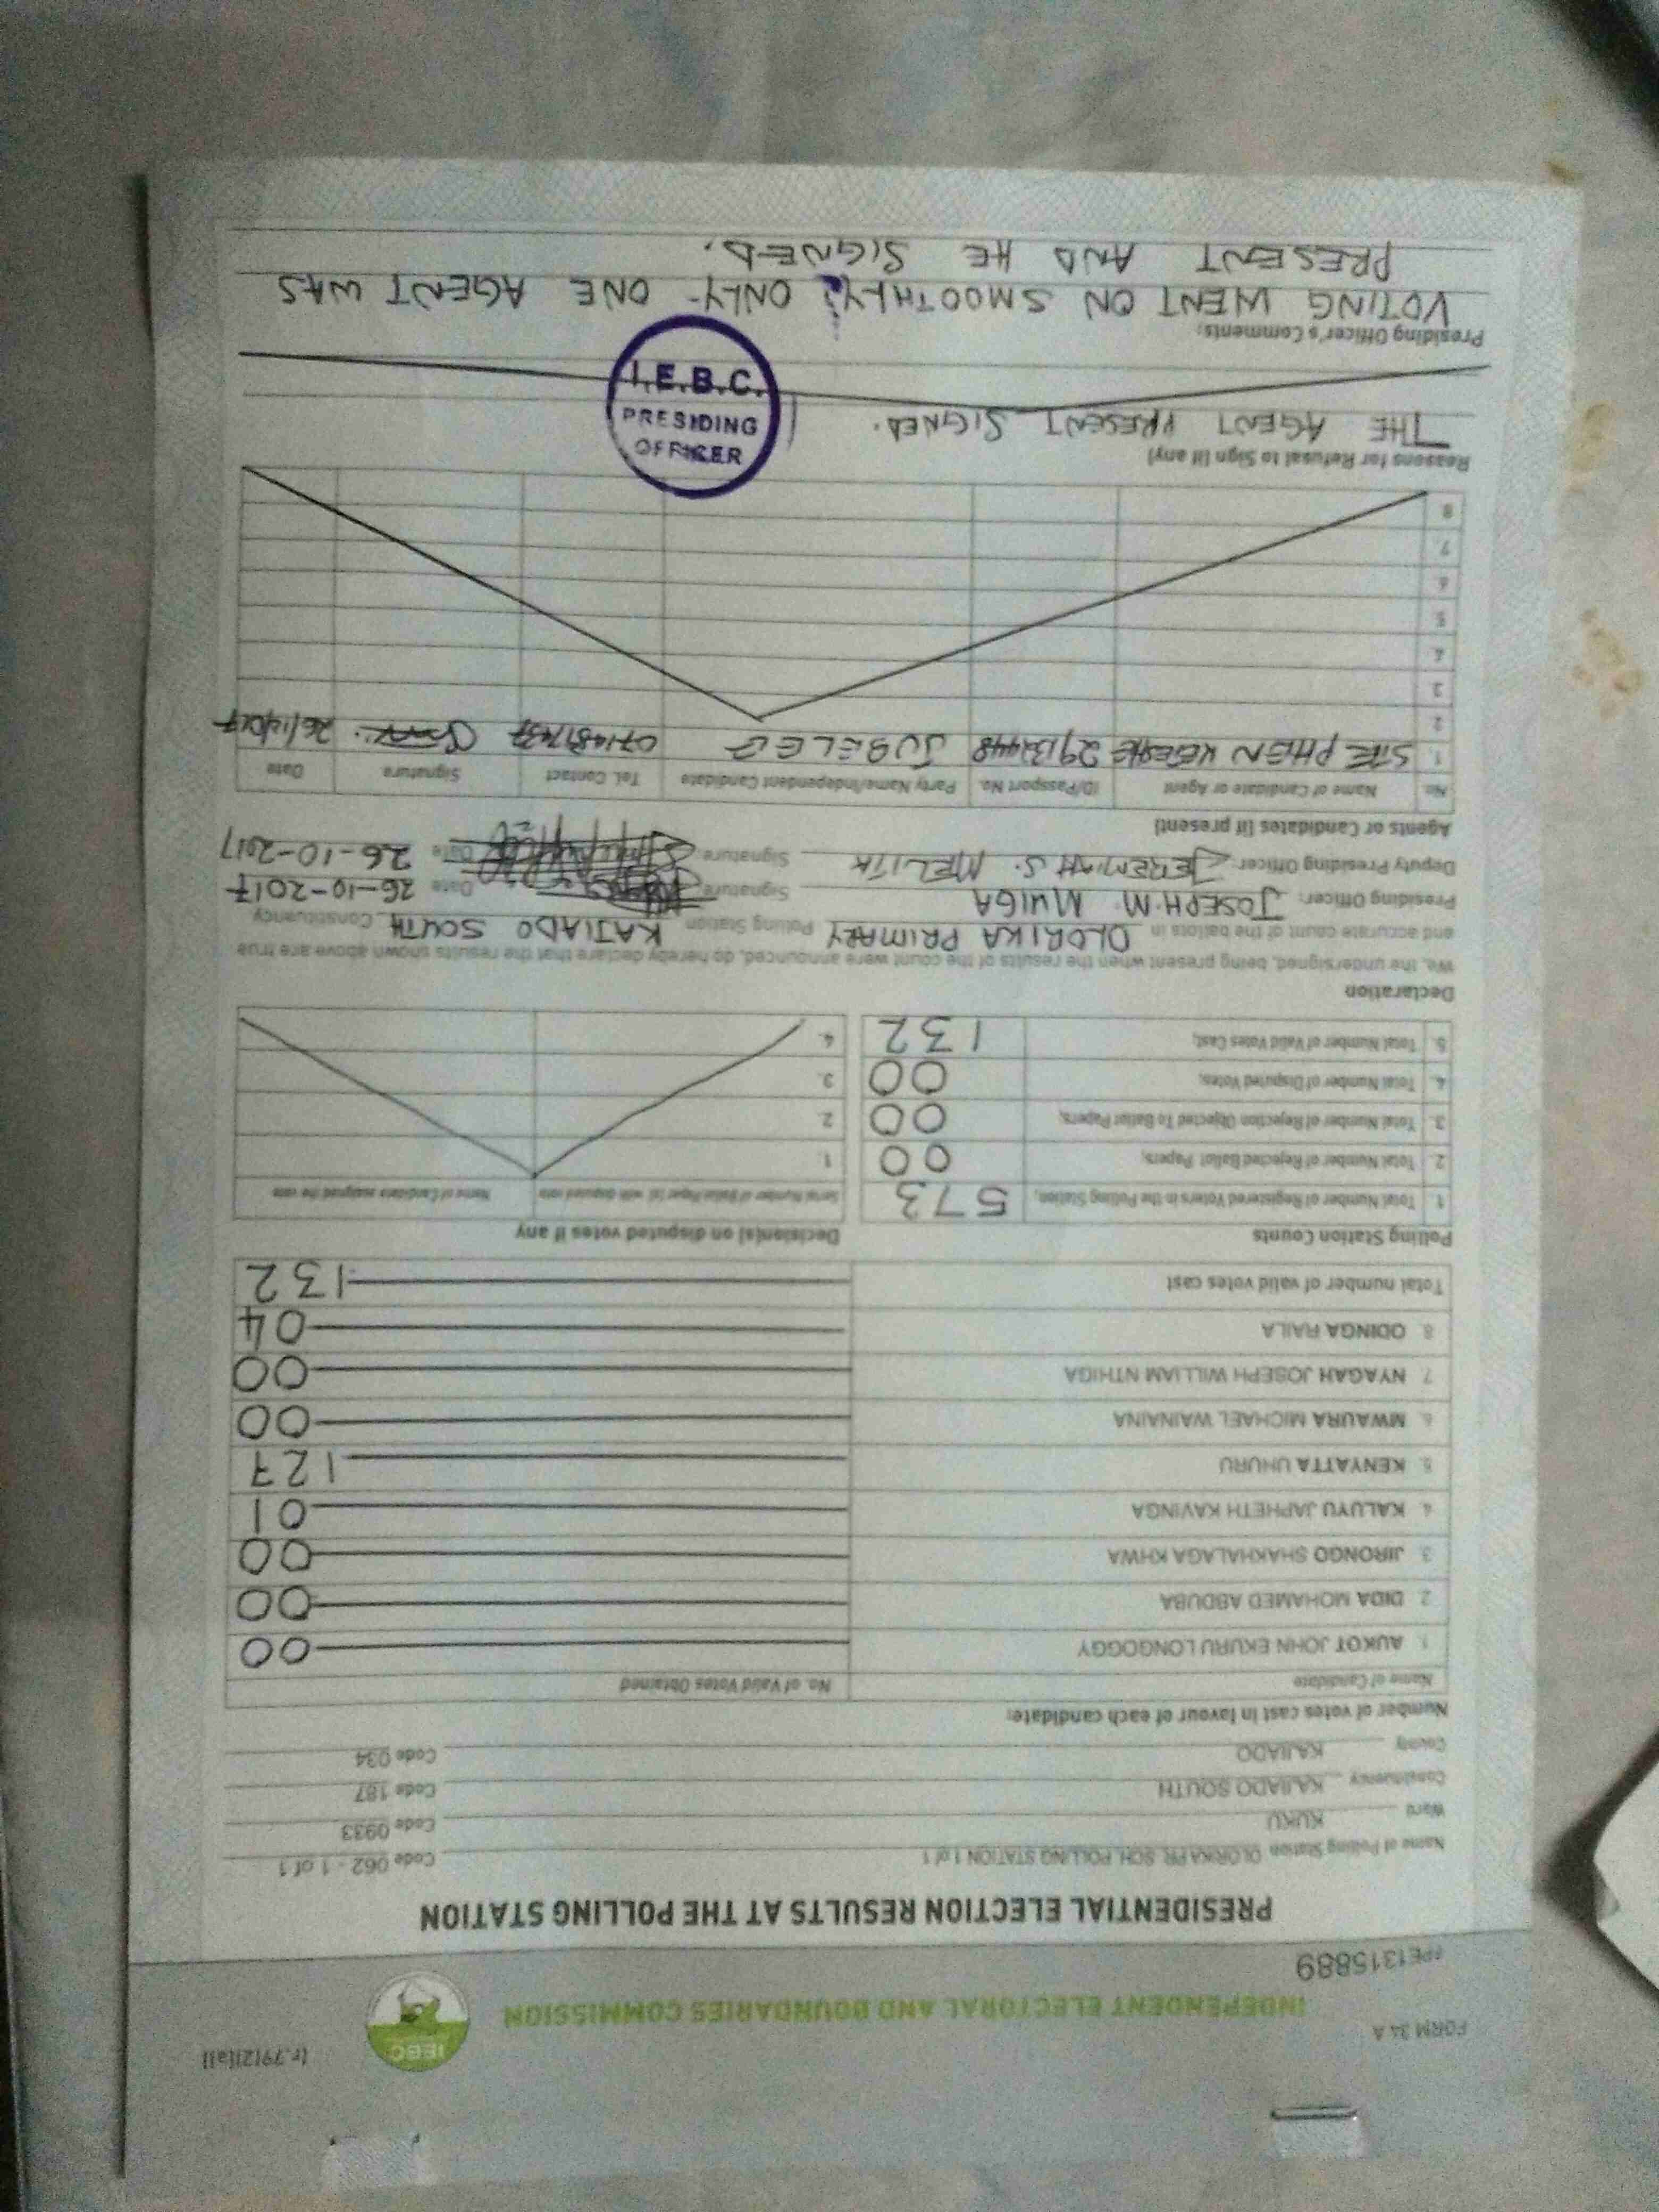 FORM 34 A
(r.79(2)(a))
INDEPENDENT ELECTORAL AND BOUNDARIES COMMISSION
IEBC
PE1315889
PRESIDENTIAL ELECTION RESULTS AT THE POLLING STATION
Name of Polling Station OLORIKA PR. SCH. POLLING STATION 1 of 1 Code 062 - 1 of 1
Ward KUKU Code 0933
Constituency KAJIADO SOUTH Code 187
County KAJIADO Code 034
Number of votes cast in favour of each candidate:
Name of Candidate No. of Valid Votes Obtained
1. AUKOT JOHN EKURU LONGOGGY 00
2. DIDA MOHAMED ABDUBA 00
3. JIRONGO SHAKHALAGA KHWA 00
4. KALUYU JAPHETH KAVINGA 01
5. KENYATTA UHURU 127
6. MWAURA MICHAEL WAINAINA 00
7. NYAGAH JOSEPH WILLIAM NTHIGA 00
8. ODINGA RAILA 04
Total number of valid votes cast 132
Polling Station Counts
1. Total Number of Registered Voters in the Polling Station; 573
2. Total Number of Rejected Ballot Papers; 00
3. Total Number of Rejection Objected To Ballot Papers; 00
4. Total Number of Disputed Votes; 00
5. Total Number of Valid Votes Cast; 132
Decision(s) on disputed votes if any
Serial Number of Ballot Paper (s) with disputed vote Name of Candidate assigned the vote
1.
2.
3.
4.
Declaration
We, the undersigned, being present when the results of the count were announced, do hereby declare that the results shown above are true
and accurate count of the ballots in OLORIKA PRIMARY Polling Station KAJIADO SOUTH Constituency
Presiding Officer: JOSEPH M. MUIGA Signature Date 26-10-2017
Deputy Presiding Officer: JEREMIAH S. MELITA Signature Date 26-10-2017
Agents or Candidates (if present)
No. Name of Candidate or Agent ID/Passport No. Party Name/Independent Candidate Tel. Contact Signature Date
1 STEPHEN JUBELEE 26/10/2017
2
3
4
5
6
7
8
Reasons for Refusal to Sign (if any)
THE AGENT PRESENT SIGNED.
I.E.B.C.
PRESIDING
OFFICER
Presiding Officer's Comments:
VOTING WENT ON SMOOTHLY; ONLY ONE AGENT WAS
PRESENT AND HE SIGNED.